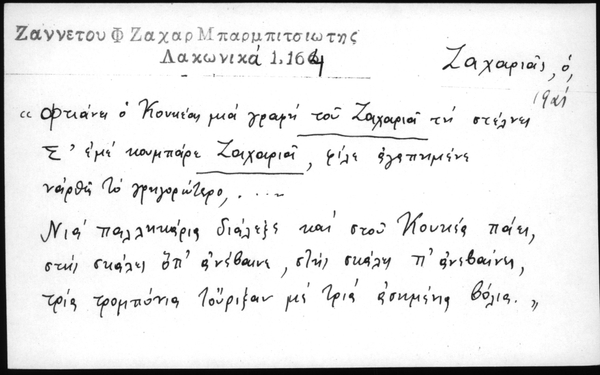 Ζαννετου Φ Ζαχαρ Μπαρμπιτσιωτης
Λακωνικά 1.164
Ζαχαριᾶς, ὁ,
1921
“Φτιάνει ὁ Κουκέας μιά γραφή τοῦ Ζαχαριᾶ τή στέλνει
Σ' ἐμέ κουμπάρε Ζαχαριᾶ, φίλε ἀγαπημένε
νάρθῃ τό γρηγορώτερο, . . –
Νιά παλληκάρια διάλεξε καί στοῦ Κουκέα πάει,
στήν σκάλαν ὅπ' ἀνέβαινε, στήν σκάλαν π' ἀνεβαίνει,
τρία τρομπόνια τοὔριξαν μέ τρία ἀσημένια βόλια.„